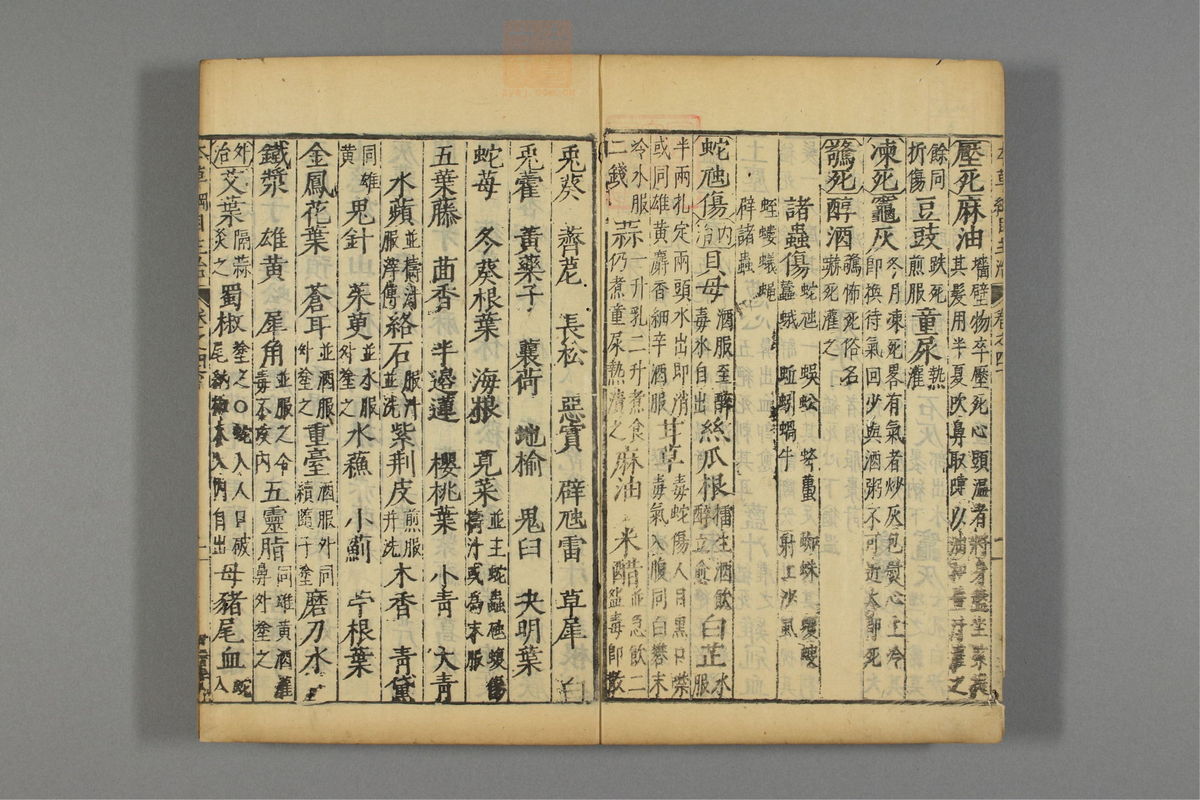 壓死麻油墻壁物卒壓死心頭溫者將身盤坐緊提其髮用半夏吹鼻取嚏以油和薑汁灌之
餘同跌死折傷豆豉煎服童尿熱灌
凍死竈灰冬月凍死畧有氣者炒灰包熨心上冷即換待氣回少與酒粥不可近火即死
驚死醇酒驚怖死俗名嚇死灌之
諸蟲傷蛇虺 蜈蚣 蜂蠆 蜘蛛 蠼螋 蠶蛾 蚯蚓 蝸牛 射工沙虱
蛭螻蟻蠅 辟諸蟲
蛇虺傷內治貝母酒服至醉毒水自出絲瓜根擂生酒飲醉立愈白芷水服
半兩扎定兩頭水出即消或同雄黃麝香細辛酒服甘草毒蛇傷人目黑口噤毒氣入腹同白礬末
冷水服二錢蒜一升乳二升煮食仍煮童尿熱漬之麻油 米醋並急飲二盌毒即散
兎葵 薺苨 長松 惡實 辟虺雷 草犀 白
兎藿 黃藥子 蘘荷 地榆 鬼臼 決明葉
蛇莓 冬葵根葉 海根 莧菜並主蛇蟲虺蝮傷擣汁或爲末服
五葉藤 茴香 半邉蓮 櫻桃葉 小青 大青
水蘋並擣汁服滓傅絡石服汁並洗紫荆皮煎服并洗木香 青黛
同雄黃鬼針 茱萸並水服外塗之水蘓 小薊 苧根葉
金鳳花葉 蒼耳並酒服外塗之重臺酒服外同續隨子塗磨刀水
鐵漿 雄黃 犀角並服之令毒不攻內五靈脂同雄黃酒灌鼻外塗之
外治艾葉隔蒜灸之蜀椒塗之○蛇入人口破尾納椒 入內自出母豬尾血蛇入